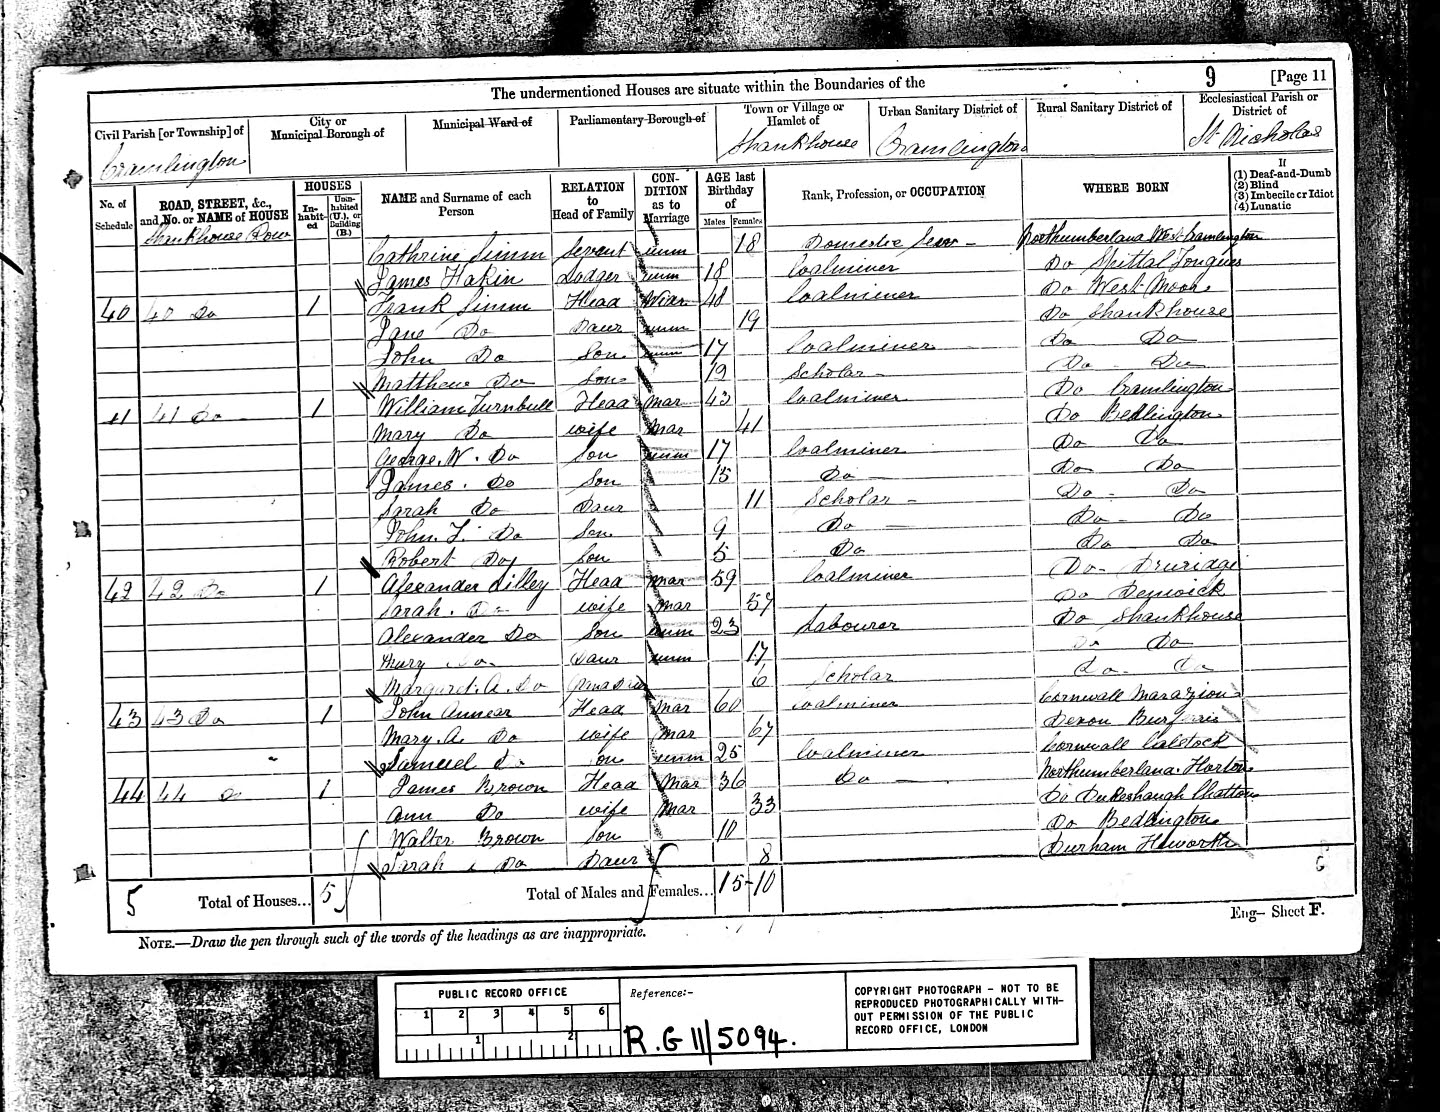 9 [Page 11
The undermentioned Houses are situate within the Boundaries of the
Civil Parish [or Township] of
Cramlington
City or
Municipal Borough of
Municipal Ward of
Parliamentary Borough of
Town or Village or
Hamlet of
Shankhouse
Urban Sanitary District of
Cramlington
Rural Sanitary District of
Ecclesiastical Parish or
District of
St Nicholas
No. of
Schedule
ROAD, STREET, &c.,
and No. or NAME of HOUSE
HOUSES
In-
habit-
ed
Unin-
habited
(U.), or
Building
(B.)
NAME and Surname of each
Person
RELATION
to
Head of Family
CON-
DITION
as to
Marriage
AGE last
Birthday
of
Males Females
Rank, Profession, or OCCUPATION
WHERE BORN
If
(1) Deaf-and-Dumb
(2) Blind
(3) Imbecile or Idiot
(4) Lunatic
Shankhouse Row
Cathrine Simm Servent unm 18 Domestic Serv Northumberland West Cramlington
James Hakin Lodger unm 18 Coalminer Do Spittal
40 40 Do 1 Frank Simm Head Widr 48 Coalminer Do West Moor
Jane Do Daur unm 19 Do Shankhouse
John Do Son unm 17 Coalminer Do Do
Matthew Do Son 12 Scholar Do Do
41 41 Do 1 William Turnbull Head Mar 42 Coalminer Do Cramlington
Mary Do wife Mar 41 Do Bedlington
George. W. Do Son unm 17 Coalminer Do Do
James. Do Son 15 Do Do Do
Sarah Do Daur 11 Scholar Do Do
John. T. Do Son 9 Do Do Do
Robert Do Son 5 Do Do Do
42 42 Do 1 Alexander Lilley Head Mar 59 Coalminer Do Druridge
Sarah. Do wife Mar 57 Do Denwick
Alexander Do Son unm 23 Labourer Do Shankhouse
Mary Do Daur unm 17 Do Do
Margaret. A. Do 6 Scholar Do Do
43 43 Do 1 John Annear Head Mar 60 Coalminer Cornwall Marazion
Mary. A. Do wife Mar 67 Devon
Samuel Do Son unm 25 Coalminer Cornwall Calstock
44 44 Do 1 James Brown Head Mar 36 Do Northumberland. Horton
Ann Do wife Mar 33 Do Chatton
Walter Brown Son 10 Do Bedlington
Sarah Do Daur 8 Durham Heworth
5 Total of Houses... 5 Total of Males and Females... 15 - 10
Eng— Sheet F.
NOTE.—Draw the pen through such of the words of the headings as are inappropriate.
PUBLIC RECORD OFFICE
1 2 3 4 5 6
1 2
Reference:-
R.G 11/5094.
COPYRIGHT PHOTOGRAPH - NOT TO BE
REPRODUCED PHOTOGRAPHICALLY WITH-
OUT PERMISSION OF THE PUBLIC
RECORD OFFICE, LONDON